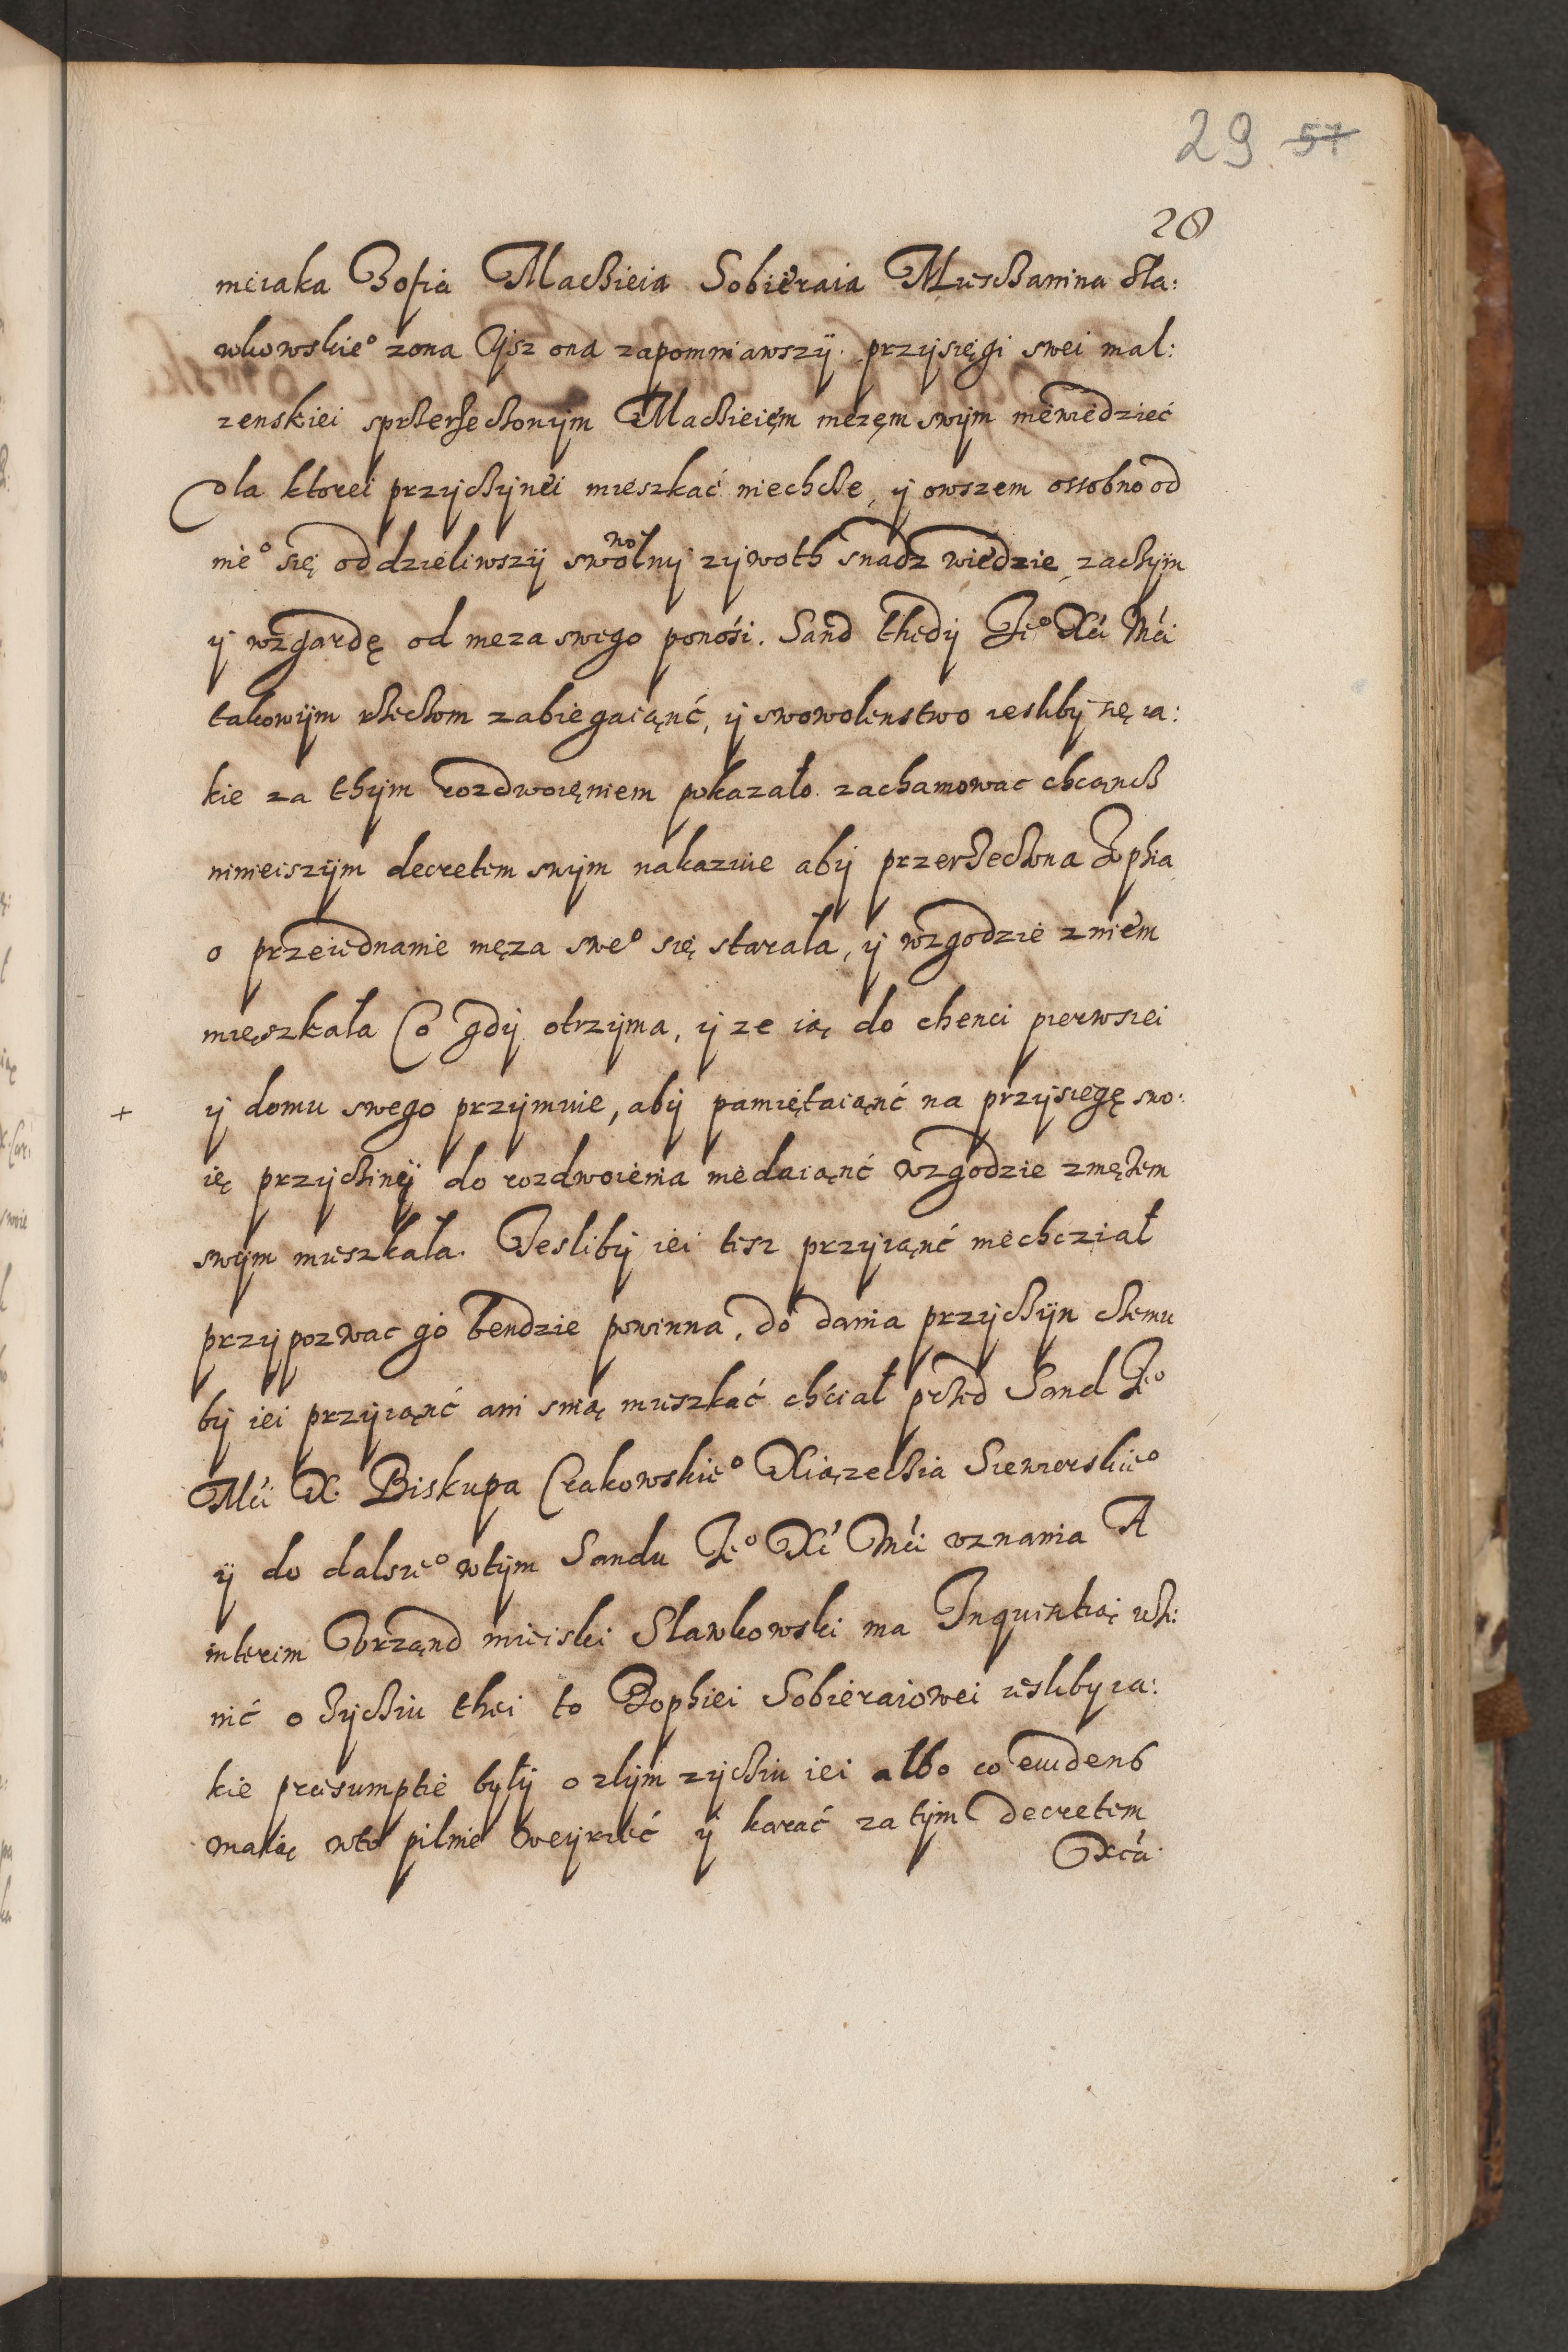 29 57
28
nieiaka Zofia Maczieia Sobieraia Miesczanina Sła:
wkowskie° zona Ijsz ona zapomniawszÿ przÿsięgi swei mal:
zenskiei sprzerzeczonÿm Maczieięm mezęm swÿm niewiedzieć
dla ktorei przÿczÿnei mieszkać niechcze, ÿ owszem ossobno od
nie° się oddzieliwszÿ swowolnÿ zÿwoth snadz wiedzie, zaczÿm
ÿ wzgardę od meza swego ponośi. Sand thedÿ Je° Xći Mći
takowÿm rzeczom zabiegaiąnć, ÿ swowolenstwo iesliby się ia:
kie za thÿm rozdwoięniem pokazało zachamowac chcącz
ninieiszÿm decretem swÿm nakazuie abÿ przerzeczona Zophia
o przeiednanie męza swe° się starała, ÿ wzgodzie zniem
mięszkała Co gdÿ otrzÿma, ÿ ze ią do chenci pierwsiei
ÿ domu swego przÿmuie, abÿ pamiętaiąnć na przÿsięgę swo:
ię przÿczinÿ do rozdwoienia niedaiąnć wzgodzie zmęzem
swÿm mieszkała. Jeslibÿ iei tesz przÿiąnć niechcział
przÿpozwac go bendzie powinna, do dania przÿczÿn czemu
bÿ iei przÿiąnć ani snią mieszkać chćiał przed Sand Je°
Mći X. Biskupa Crakowskie° Xiązeczia Siewierskie°
ÿ do dalsze° wtÿm Sandu Je° Xći Mći vznania A
interim Vrząnd mieiski Sławkowski ma Inquisitią vcży:
nić o zÿcziu thei to Zophiei Sobieraiowei iesliby ia:
kie presumptie bÿłÿ o złÿm zÿcziu iei albo co euidens
maią wto pilnie weÿrzeć ÿ karać za tÿm decretem
Xćia